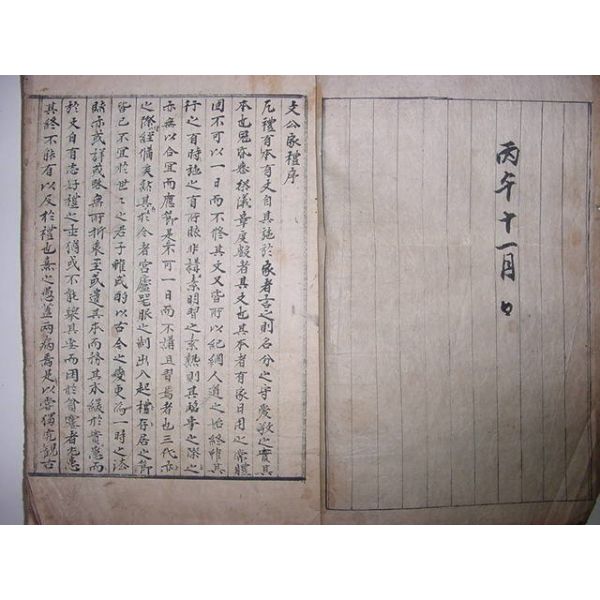 丙午十一月 日
文公家禮序
凡禮有本有文自其施於家者言之則名分之守愛敬之實其
本也冠昏喪祭儀章度數者其文也其本者有家日用之常體
固不可以一日而不修其文又皆所以紀綱人道之始終雖其
行之有時施之有所然非講素明習之素熟則其臨事之際
亦無以合宜而應節是不可一日而不講且習焉者也三代
之際經備矣然其於今者宮廬器服之制出入起禮存居之節
皆已不宜於世々之君子雖或酌以古今之變更為一時之法
然亦或詳或略無所折衷至或遺其本而務其末緩於實急而
於文自有志好禮之士猶或不能舉其要而困於貧窶者尤患
其終不能有以及於禮也熹之愚蓋兩病焉是以嘗獨究觀古